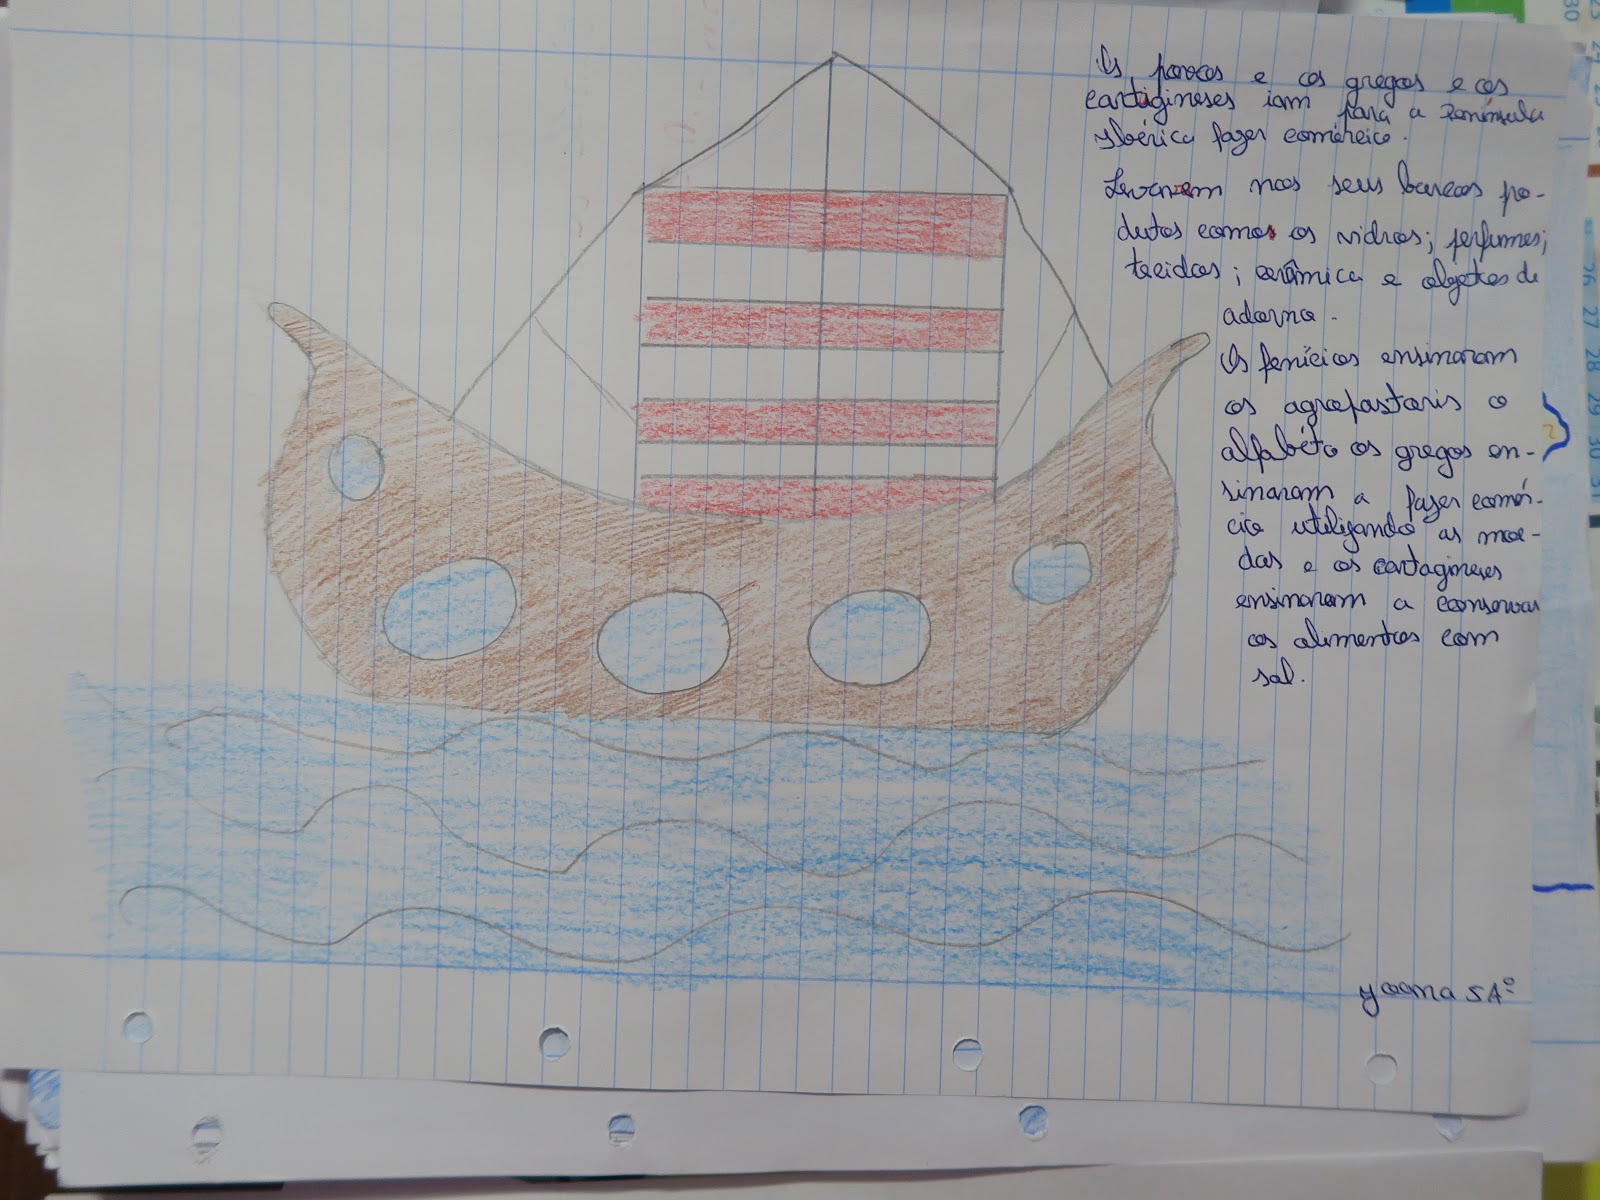 Os povos e os gregos e os
cartagineses iam para a Península
Ibérica fazer comércio.
Levarem nos seus barcos po-
dutos comos os vidros; perfumes;
tecidos; cerâmica e objetos de
adorno.
Os fenícios ensinaram
os agropastoris o
alfabéto os gregos en-
sinaram a fazer comér-
cio utilizando as moe-
das e os cartagineses
ensinaram a conservar
os alimentos com
sal.
5Aº
26
27
28
29
30
31
30